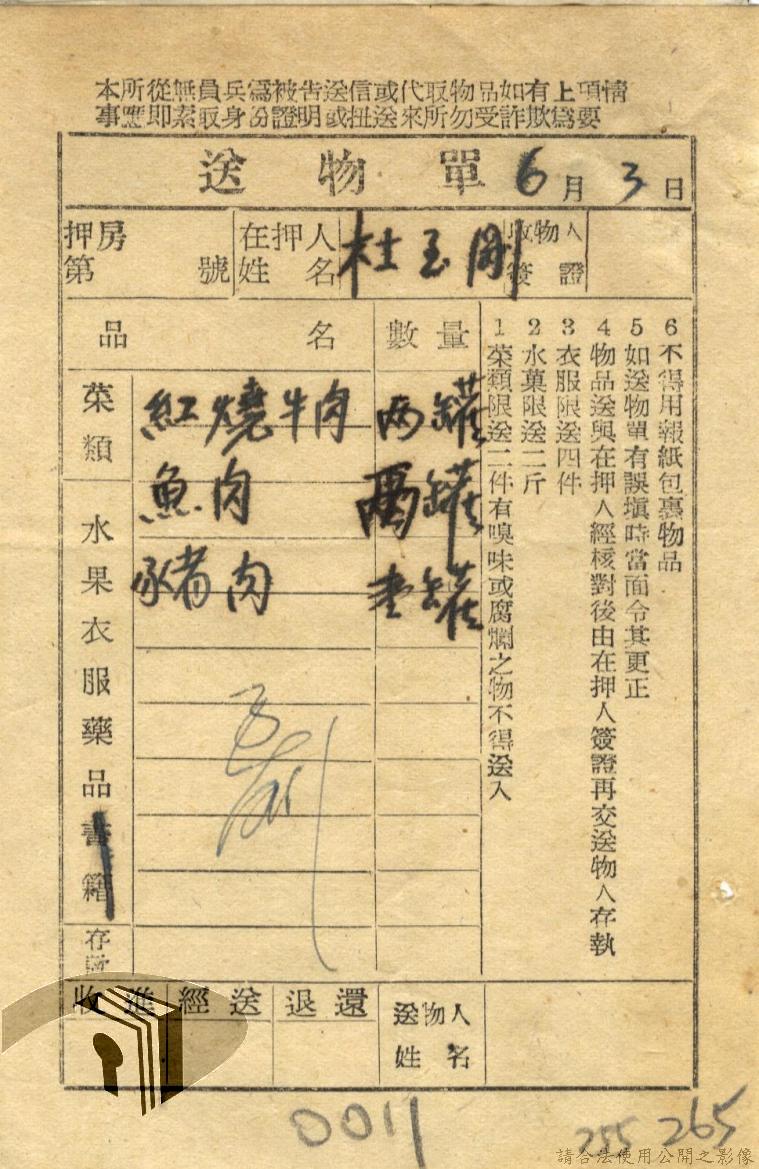 本所從無員兵為被告送信或代取物品如有上項情
事應即索取身份證明或扭送來所勿受詐欺為要
送物單 6月3日
押房
第 號
在押人
姓 名
杜玉剛
收物人
簽 證
品 名
數 量
菜類
水果衣服藥品書籍
存款
紅燒牛肉 両罐
魚肉 兩罐
豬肉 壹罐
6 不得用報紙包裹物品
5 如送物單有誤填時當面令其更正
4 物品送與在押人經核對後由在押人簽證再交送物人存執
3 衣服限送四件
2 水菓限送二斤
1 菜類限送二件有嗅味或腐爛之物不得送入
收進 經送 退還
送物人
姓 名
0011
255 265
請合法使用公開之影像